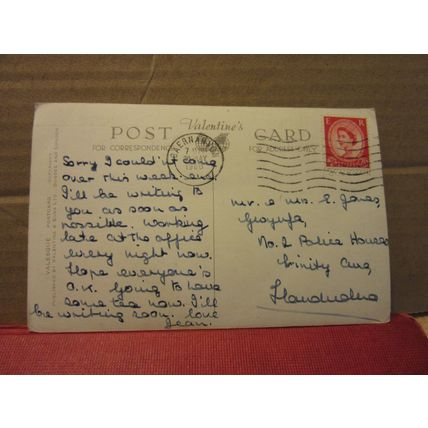 POST Valentine's CARD
FOR CORRESPONDENCE
FOR ADDRESS ONLY
CAERNARVON
Sorry I could'nt come
over this week-end.
I'll be writing to
you as soon as
possible. Working
late at the office
every night now.
Hope everyone's
O.K. going to have
some tea now. I'll
be writing soon. love
Jean.
Mr. & Mrs. E. Jones,
No. 2 Police Houses
Trinity Ave,
Llandudno
E R
VALESQUE POSTCARD